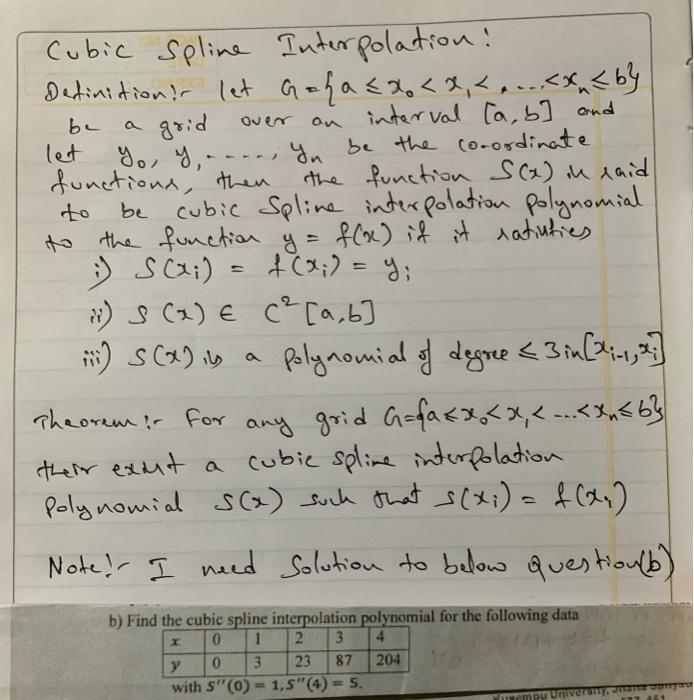 Cubic Spline Interpolation:
Definition:- let G={a ≤ x₀ < x₁ < .... < xₙ ≤ b}
be a grid over an interval [a,b] and
let y₀, y₁, ----, yₙ be the co-ordinate
functions, then the function S(x) is said
to be cubic Spline interpolation polynomial
to the function y = f(x) if it satisfies
i) S(xᵢ) = f(xᵢ) = yᵢ
ii) S(x) ∈ C² [a,b]
iii) S(x) is a polynomial of degree ≤ 3 in [xᵢ₋₁, xᵢ]
Theorem:- For any grid G={a≤x₀<x₁< ...<xₙ≤b},
their exist a cubic spline interpolation
Polynomial S(x) such that s(xᵢ) = f(xᵢ)
Note:- I need Solution to below Question(b)
b) Find the cubic spline interpolation polynomial for the following data
x 0 1 2 3 4
y 0 3 23 87 204
with S''(0) = 1, S''(4) = 5.
University,